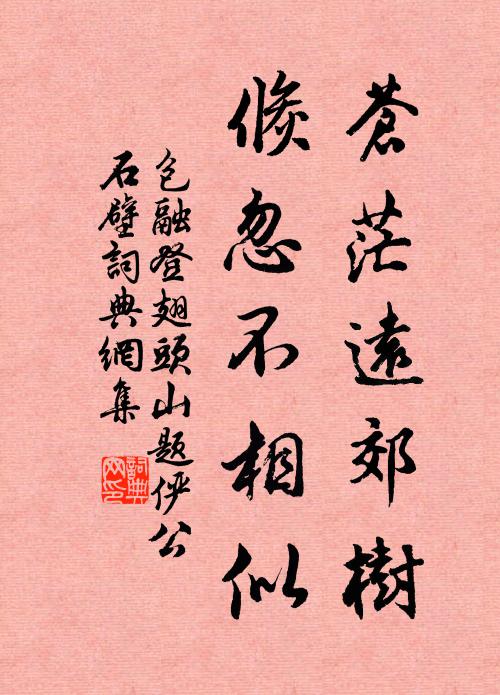 蒼茫遠郊樹
倏忽不相似
包融登翅頭山題俨公
石壁詞典網集
詞典網印